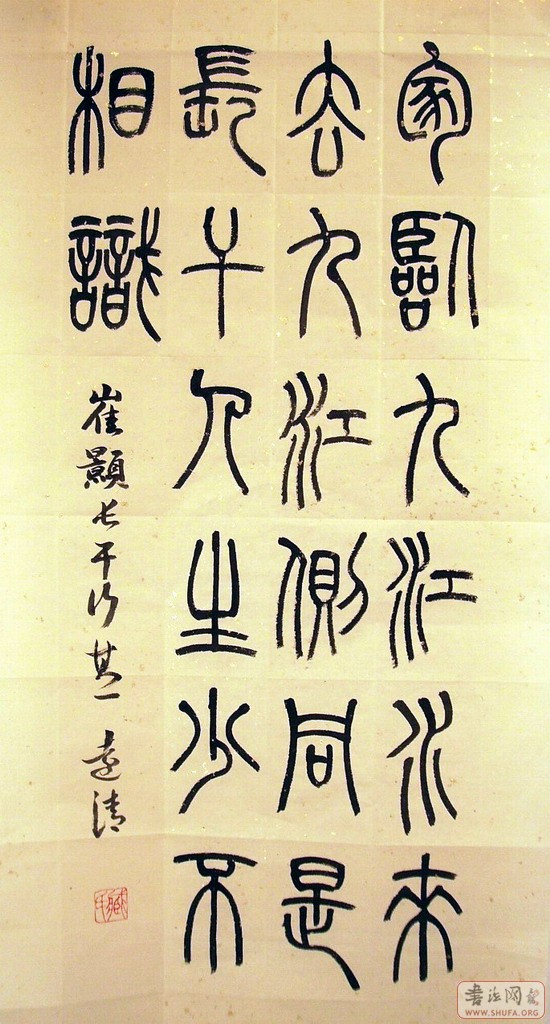 家臨九江水來
去九江側同是
長干人生少不
相識
崔顥長干行其一 遠清
书法网
WWW.SHUFA.ORG